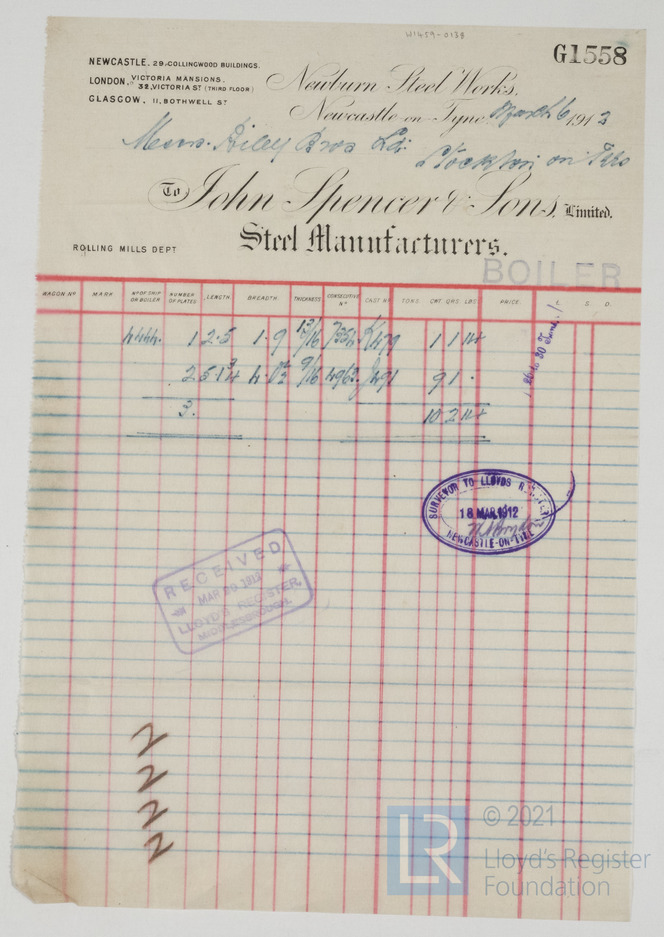 W1459-0138
G1558
NEWCASTLE, 29, COLLINGWOOD BUILDINGS.
LONDON, VICTORIA MANSIONS,
32, VICTORIA ST (THIRD FLOOR)
GLASGOW, 11, BOTHWELL ST
Newburn Steel Works,
Newcastle-on-Tyne, March 6 1912
Messrs. Riley Bros Ld: Stockton on Tees
To John Spencer & Sons, Limited.
Steel Manufacturers.
ROLLING MILLS DEPT
BOILER
WAGON No MARK No OF SHIP OR BOILER NUMBER OF PLATES LENGTH. BREADTH. THICKNESS CONSECUTIVE No CAST No TONS CWT QRS LBS PRICE. S. D.
4444. 1 2.5 1.9 13/16 K479 1 1 14
2 9/16 9 1 .
3. 10 2 14
SURVEYOR TO LLOYDS REGISTER
18 MAR. 1912
NEWCASTLE-ON-TYNE
RECEIVED
MAR 20 1912
LLOYD'S REGISTER,
MIDDLESBROUGH.
2222
LR
© 2021
Lloyd's Register
Foundation